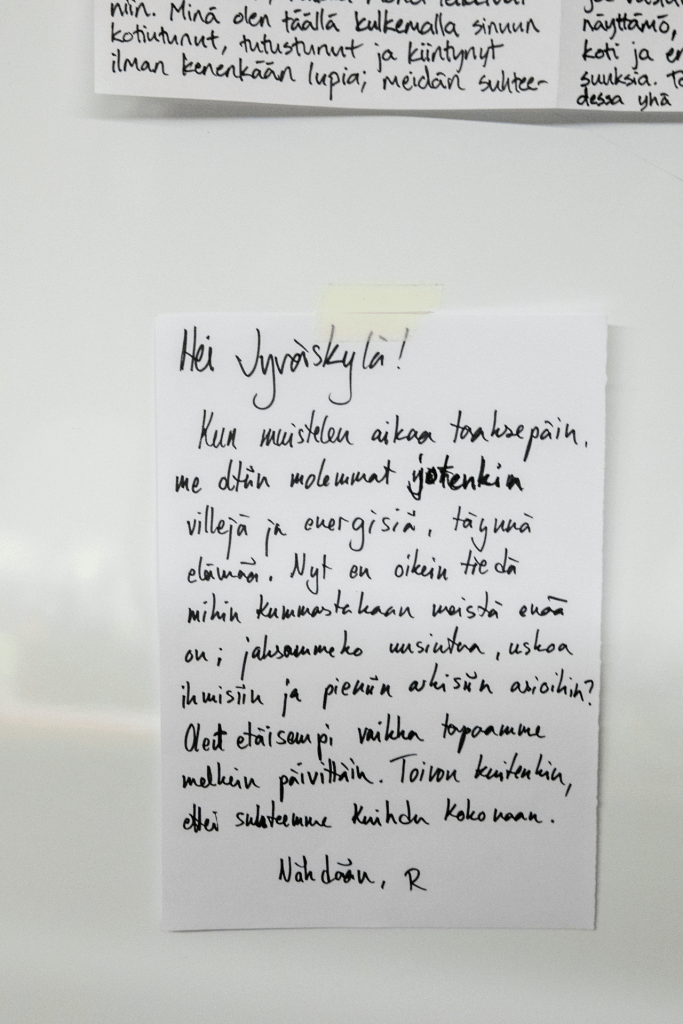 niin. Minä olen täällä kulkemalla sinuun
kotiutunut, tutustunut ja kiintynyt
ilman kenenkään lupia; meidän suhtee-
näyttämö,
koti ja er
suuksia. To
dessa yhä
Hei Jyväiskylä!
Kun muistelen aikaa taaksepäin,
me oltiin molemmat jotenkin
villejä ja energisiä, täynnä
elämää. Nyt en oikein tiedä
mihin kummastakaan meistä enää
on; jaksammeko uusintaa, uskoa
ihmisiin ja pieniin arkisiin asioihin?
Olet etäisempi vaikka tapaamme
melkein päivittäin. Toivon kuitenkin,
ettei suhteemme kuihdu kokonaan.
Nähdään, R